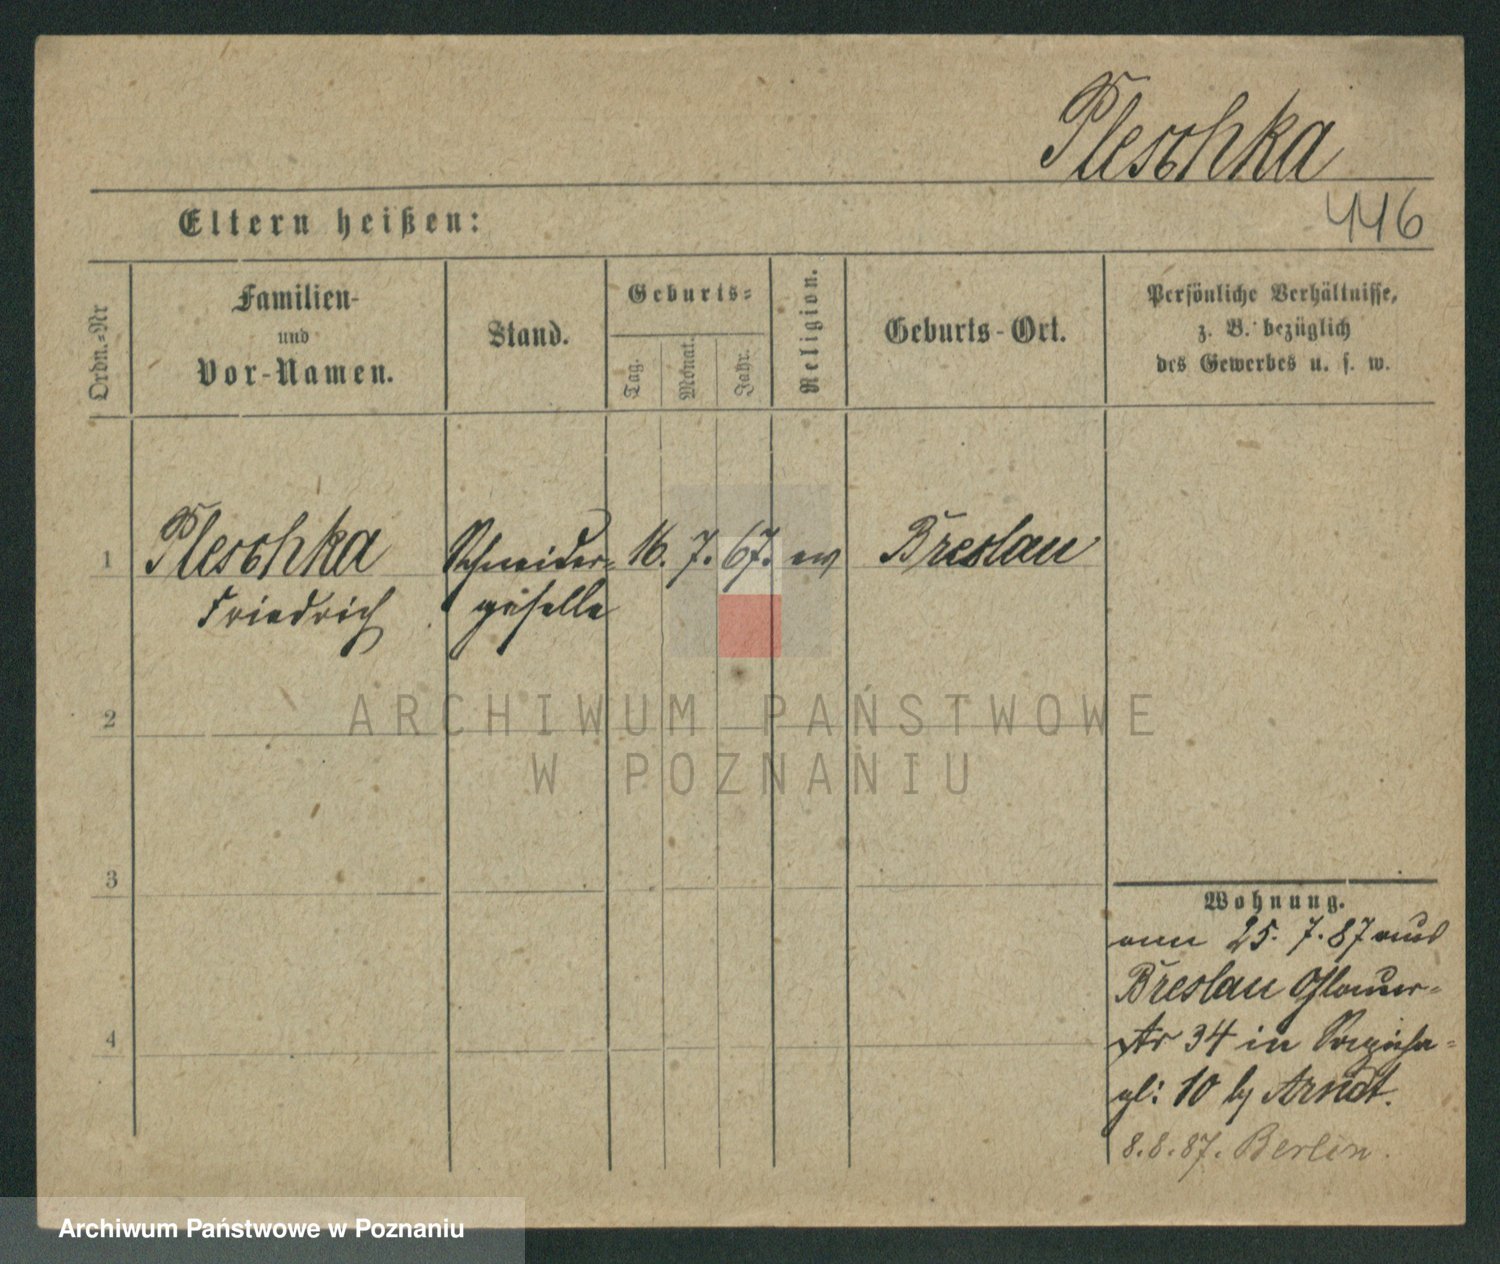 Pleschka
446
Eltern heißen:
Ordn.-Nr
Familien-
und
Vor-Namen.
Stand.
Geburts-
Tag.
Monat.
Jahr.
Religion.
Geburts-Ort.
Persönliche Verhältnisse,
z. B. bezüglich
des Gewerbes u. s. w.
1 Pleschka Schneider- 16. 7. 67. ev Breslau
Friedrich geselle
2
ARCHIWUM PAŃSTWOWE
W POZNANIU
3
4
Wohnung.
25. 7. 87 aus
Breslau Ohlauer-
Str 34 in
10 by Arndt.
8.8.87. Berlin.
Archiwum Państwowe w Poznaniu